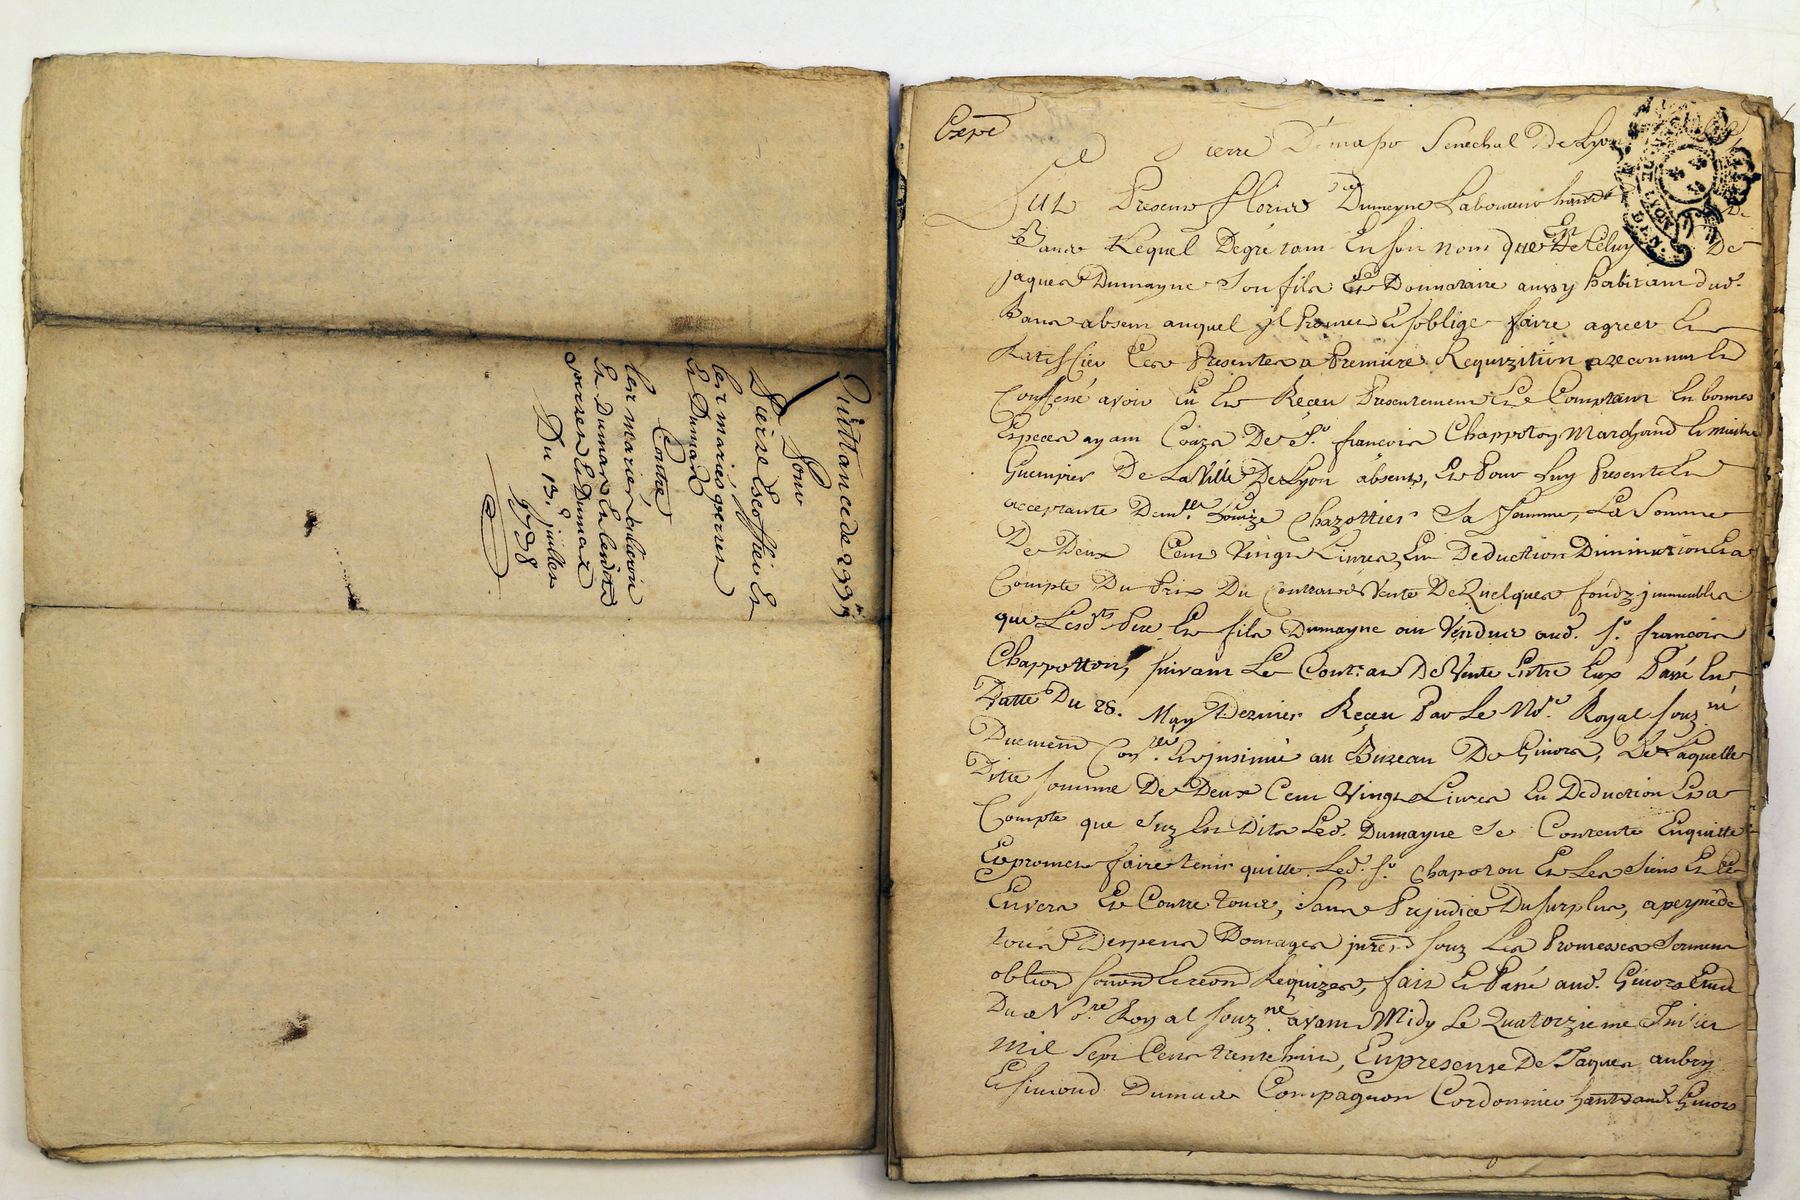 Quittance de 299#
Pour
Pierre Escoffier Et
les mariés goerres
Et Dumax
Contre
les mariés
Et Dumax Et lesdits
goerres Et Dumax
Du 13. juillet
1738
Expé
Pierre Senechal De Lyon
Fut Present Dumayne Laboureur
Bans Lequel De gré tant En son nom que De Celuy De
jaques Dumayne Son fils Et Donnataire aussy habitant dud.
Bans absent auquel jl Promet Et soblige faire agreer Et
Rattiffier Ces Presentes a Premiere Requizition, a reconnu Et
Confessé avoir Eu Et Receu Presentement Et Comptant En bonnes
Especes ayant Cours De Sr. françois Chappoton Marchand Et maitre
Guimpier De La Ville De Lyon absent, Et Pour Luy Presente Et
acceptante Demlle. Louize Chazottier Sa femme, La Somme
De Deux Cent Vingt Livres, En Deduction Diminution Et a
Compte Du Prix Du Contrat De Vente De Quelques fondz jmmeubles
que Lesdts. Pere Et fils Dumayne ont Vendus aud. Sr. françois
Chappotton, suivant Le Contrat De Vente Entre Eux Passé En
Datte Du 28. May Dernier Receu Par Le Nore. Royal souz né
Duement Conllé. Et jnsinué au Bureau De Givors, De Laquelle
Ditte somme De Deux Cent Vingt Livres En Deduction Et a
Compte que Sus Est Dit Led. Dumayne Se Contente En quitte
Et promet faire tenir quitte Led. Sr. Chapoton Et Les Siens
Envers Et Contre tous, Sans Prejudice Du surplus, a peyne de
tous Despens Domages jnrets souz Les Promesses Serment
Requizes, fait Et Passé aud. Givors Etude
Du Nore. Royal souz né. avant Midy Le Quatorzieme Juillet
mil Sept Cent trente huit, En presense De Jaques aubry
Et simond Dumas Compagnon Cordonnier Givors